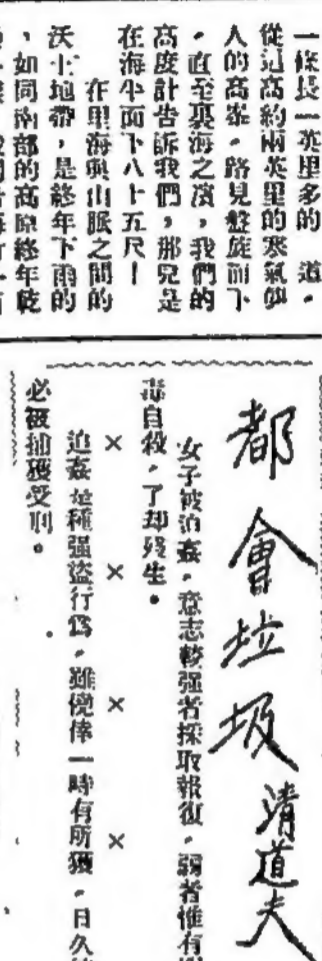 一條長一英里多的　道，
從這高約兩英里的寒氣
人的高峯，路見盤旋而下
，直至裏海之濱，我們的
高度計告訴我們，那兒是
在海平面下八十五尺！
在里海與山脈之間的
沃土地帶，是終年下雨的
，如同南部的高原終年乾
都會垃圾
清道夫
女子被迫姦，意志較强者採取報復，弱者惟有
毒自殺，了却殘生。
× × × ×
迫姦是種强盜行爲，雖僥倖一時有所獲，日久
必被捕獲受刑。